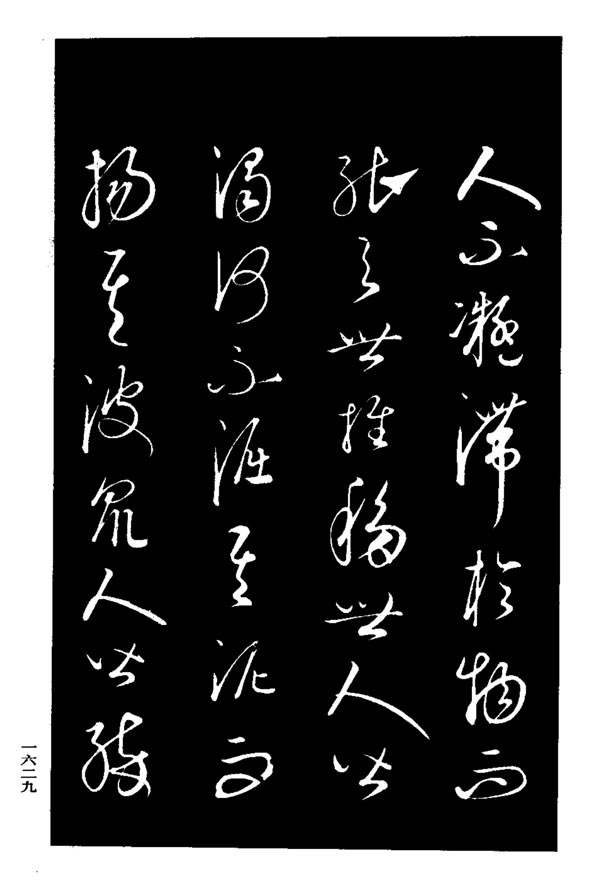 人不凝滯於物而
能与世推移世人皆
濁何不淈其泥而
揚其波眾人皆醉
一六二九